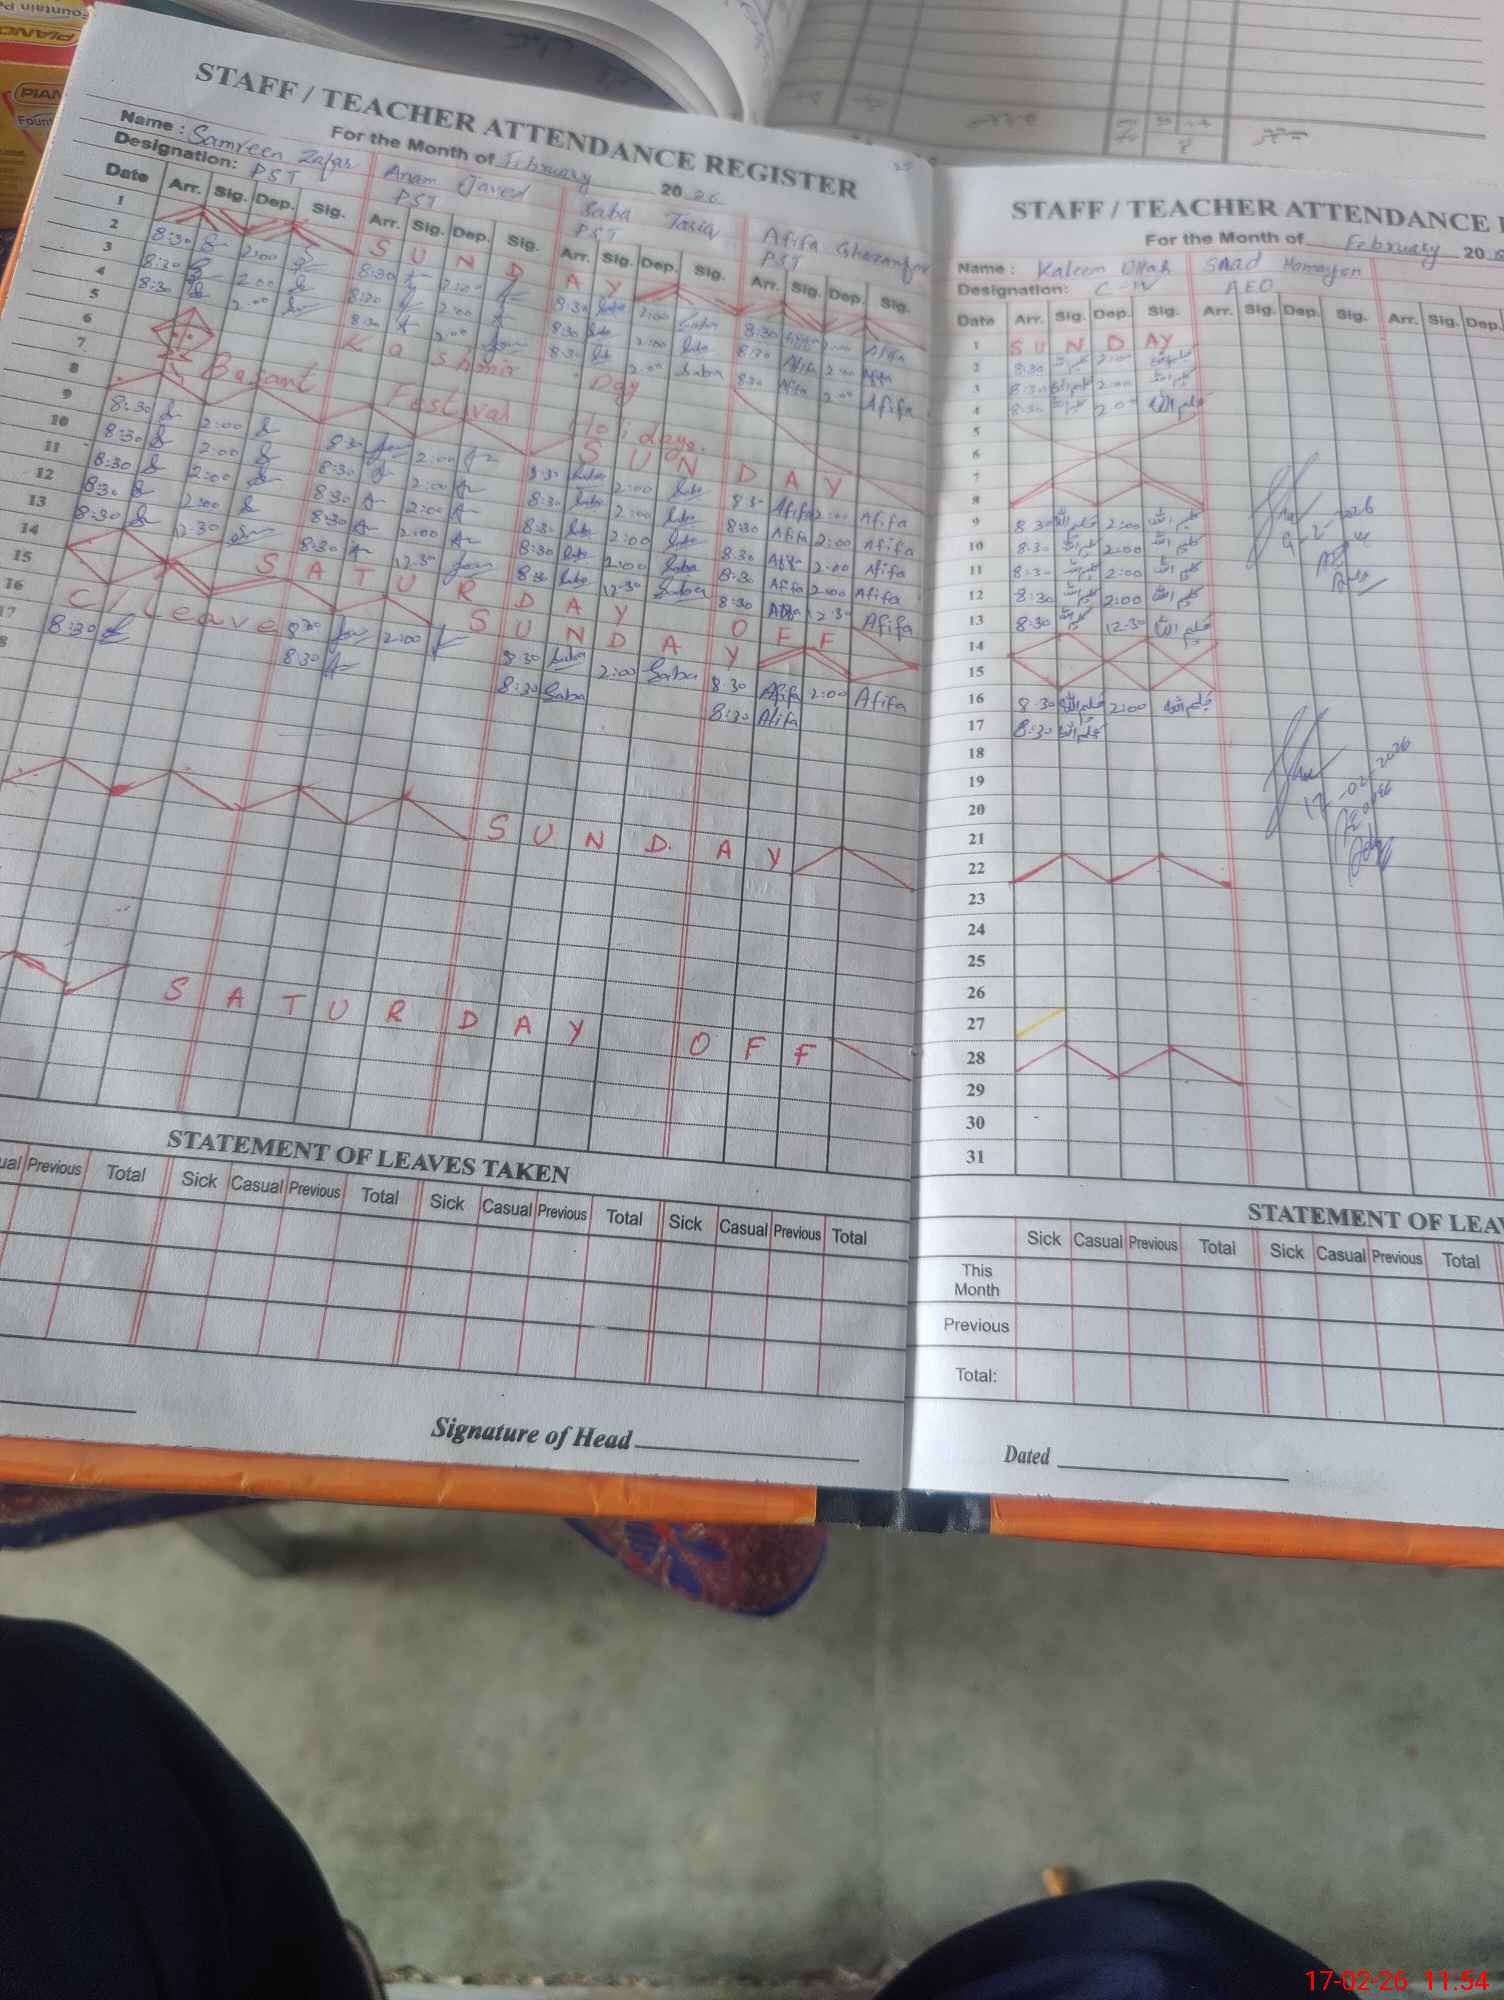 STAFF / TEACHER ATTENDANCE REGISTER
For the Month of February 2026
Name : Samreen Zafar Anam Javed Saba Tariq Afifa Ghazanfar
Designation: PST PST PST PST
Date Arr. Sig. Dep. Sig. Arr. Sig. Dep. Sig. Arr. Sig. Dep. Sig. Arr. Sig. Dep. Sig.
1 SUNDAY
2 8:30 2:00 8:30 2:00 8:30 Saba 2:00 Saba 8:30 Afifa 2:00 Afifa
3 8:30 2:00 8:30 2:00 8:30 Saba 2:00 Saba 8:30 Afifa 2:00 Afifa
4 8:30 2:00 8:30 2:00 8:30 Saba 2:00 Saba 8:30 Afifa 2:00 Afifa
5 Kashmir Day
6 Basant Festival Holidays.
7
8 SUNDAY
9 8:30 2:00 8:30 2:00 8:30 Saba 2:00 Saba 8:30 Afifa 2:00 Afifa
10 8:30 2:00 8:30 2:00 8:30 Saba 2:00 Saba 8:30 Afifa 2:00 Afifa
11 8:30 2:00 8:30 2:00 8:30 Saba 2:00 Saba 8:30 Afifa 2:00 Afifa
12 8:30 2:00 8:30 2:00 8:30 Saba 2:00 Saba 8:30 Afifa 2:00 Afifa
13 8:30 12:30 8:30 12:30 8:30 Saba 12:30 Saba 8:30 Afifa 12:30 Afifa
14 SATURDAY OFF
15 SUNDAY
16 C/Leave 8:30 2:00 8:30 Saba 2:00 Saba 8:30 Afifa 2:00 Afifa
17 8:30 8:30 8:30 Saba 8:30 Afifa
SUNDAY
SATURDAY OFF
STATEMENT OF LEAVES TAKEN
Previous Total Sick Casual Previous Total Sick Casual Previous Total Sick Casual Previous Total
Signature of Head
STAFF / TEACHER ATTENDANCE
For the Month of February 20
Name : Kaleem Ullah Saad Homayon
Designation: C-IV AEO
Date Arr. Sig. Dep. Sig. Arr. Sig. Dep. Sig. Arr. Sig. Dep.
1 SUNDAY
2 8:30 کلیم اللہ 2:00 کلیم اللہ
3 8:30 کلیم اللہ 2:00 کلیم اللہ
4 8:30 کلیم اللہ 2:00 کلیم اللہ
5
6
7
8
9 8:30 کلیم اللہ 2:00 کلیم اللہ
10 8:30 کلیم اللہ 2:00 کلیم اللہ
11 8:30 کلیم اللہ 2:00 کلیم اللہ
12 8:30 کلیم اللہ 2:00 کلیم اللہ
13 8:30 کلیم اللہ 12:30 کلیم اللہ
14
15
16 8:30 کلیم اللہ 2:00 کلیم اللہ
17 8:30 کلیم اللہ
18
19
20
21
22
23
24
25
26
27
28
29
30
31
9-2-2026
17-02-2026
STATEMENT OF
Sick Casual Previous Total Sick Casual Previous Total
This Month
Previous
Total:
Dated
17-02-26 11:54